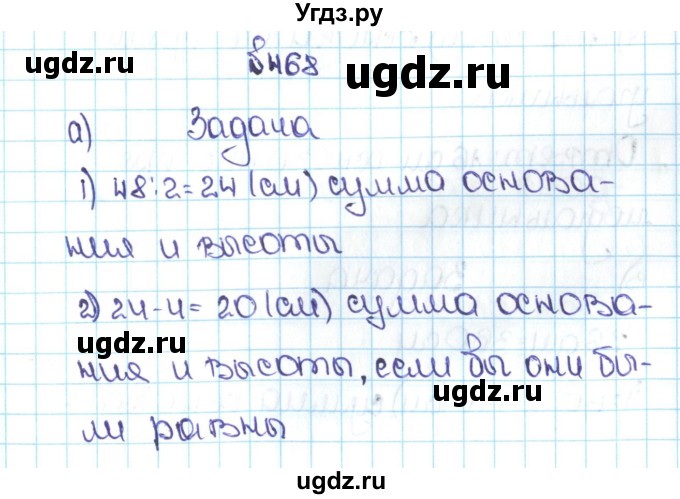 Угдз.ру
ugdz.ru №468 ugdz.ru
а) Задача
1) 48:2=24 (см) сумма основа-
ugdz.ru
ния и высоты
2) 24-4=20 (см) сумма основа-
ugdz.ru
ния и высоты, если бы они бы-
ugdz.ru
ли равны
ugdz.ru